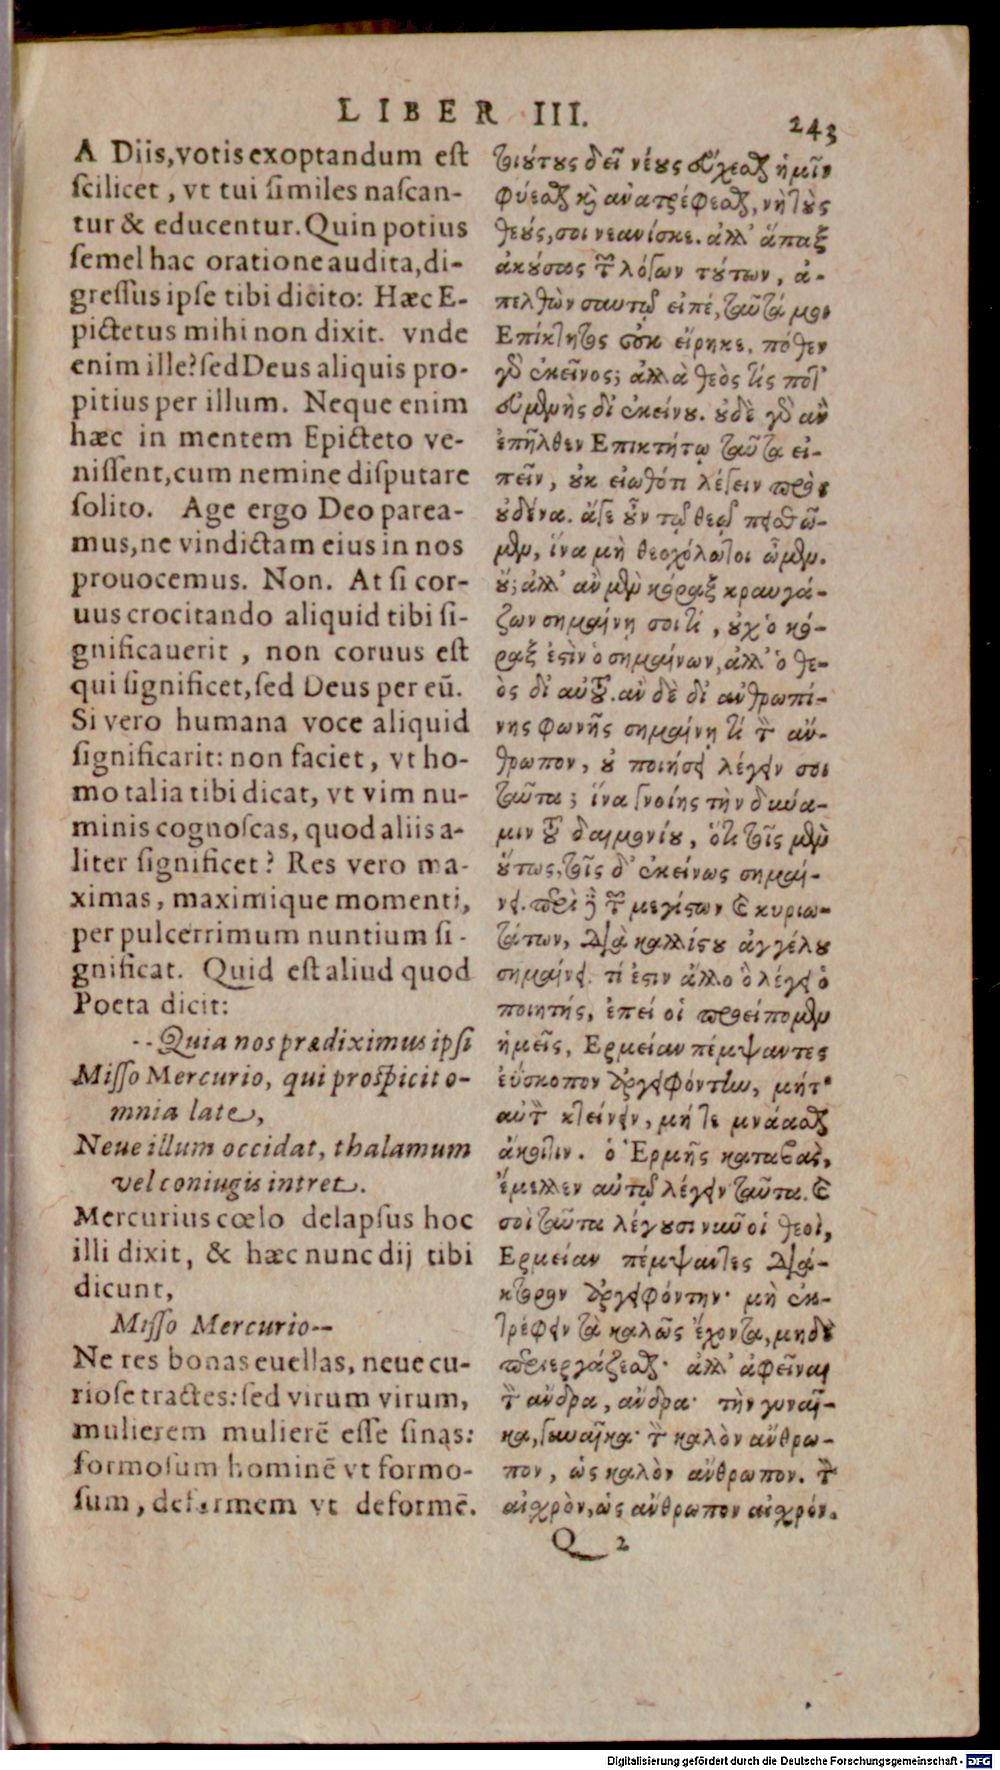 LIBER III.
243
A Diis, votis exoptandum est
scilicet, vt tui similes nascan-
tur & educentur. Quin potius
semel hac oratione audita, di-
gressus ipse tibi dicito: Hæc E-
pictetus mihi non dixit. vnde
enim ille? sed Deus aliquis pro-
pitius per illum. Neque enim
hæc in mentem Epicteto ve-
nissent, cum nemine disputare
solito. Age ergo Deo parea-
mus, ne vindictam eius in nos
prouocemus. Non. At si cor-
uus crocitando aliquid tibi si-
gnificauerit, non coruus est
qui significet, sed Deus per eū.
Si vero humana voce aliquid
significarit: non faciet, vt ho-
mo talia tibi dicat, vt vim nu-
minis cognoscas, quod aliis a-
liter significet? Res vero ma-
ximas, maximique momenti,
per pulcerrimum nuntium si-
gnificat. Quid est aliud quod
Poeta dicit:
--Quia nos prædiximus ipsi
Misso Mercurio, qui prospicit o-
mnia late,
Neue illum occidat, thalamum
vel coniugis intret.
Mercurius cœlo delapsus hoc
illi dixit, & hæc nunc dij tibi
dicunt,
Misso Mercurio--
Ne res bonas euellas, neue cu-
riose tractes: sed virum virum,
mulierem mulierē esse sinas:
formosum hominē vt formo-
sum, deformem vt deformē.
τοιούτους δεῖ νέους εὔχεσθαι ἡμῖν
φύεσθαι καὶ ἀνατρέφεσθαι, νὴ τοὺς
θεούς, σοι νεανίσκε. ἀλλ' ἅπαξ
ἀκούσας τῶν λόγων τούτων, ἀ-
πελθὼν σαυτῷ εἰπέ, ταῦτά μοι
Επίκτητος οὐκ εἴρηκε. πόθεν
γὰρ ἐκεῖνος; ἀλλὰ θεός τίς ποτ'
εὐμενὴς δι' ἐκείνου. οὐδὲ γὰρ ἂν
ἐπῆλθεν Επικτήτῳ ταῦτα εἰ-
πεῖν, οὐκ εἰωθότι λέγειν πρὸς
οὐδένα. ἄγε οὖν τῷ θεῷ πεισθῶ-
μεν, ἵνα μὴ θεοχόλωτοι ὦμεν.
οὔ; ἀλλ' ἂν μὲν κόραξ κραυγά-
ζων σημαίνῃ σοι τί, οὐχ ὁ κό-
ραξ ἐστὶν ὁ σημαίνων, ἀλλ' ὁ θε-
ὸς δι' αὐτοῦ. ἂν δὲ δι' ἀνθρωπί-
νης φωνῆς σημαίνῃ τί τὸν ἄν-
θρωπον, οὐ ποιήσει λέγειν σοι
ταῦτα; ἵνα γνοίης τὴν δύνα-
μιν τοῦ δαιμονίου, ὅτι τοῖς μὲν
οὕτως, τοῖς δ' ἐκείνως σημαί-
νει. περὶ δὲ τῶν μεγίστων καὶ κυριω-
τάτων, διὰ καλλίστου ἀγγέλου
σημαίνει. τί ἐστιν ἄλλο ὃ λέγει ὁ
ποιητής, ἐπεί οἱ προείπομεν
ἡμεῖς, Ερμείαν πέμψαντες
εὔσκοπον ἀργειφόντην, μήτ'
αὐτὸν κτείνειν, μήτε μνάασθαι
ἄκοιτιν. ὁ Ἑρμῆς καταβὰς,
ἔμελλεν αὐτῷ λέγειν ταῦτα. καὶ
σοὶ ταῦτα λέγουσι νῦν οἱ θεοὶ,
Ερμείαν πέμψαντες διά-
κτορον ἀργειφόντην· μὴ ἐκ-
τρέφειν τὰ καλῶς ἔχοντα, μηδὲ
περιεργάζεσθαι· ἀλλ' ἀφεῖναι
τὸν ἄνδρα, ἄνδρα· τὴν γυναῖ-
κα, γυναῖκα· τὸν καλὸν ἄνθρω-
πον, ὡς καλὸν ἄνθρωπον. τὸν
αἰσχρὸν, ὡς ἄνθρωπον αἰσχρόν.
Q 2
Digitalisierung gefördert durch die Deutsche Forschungsgemeinschaft - DFG